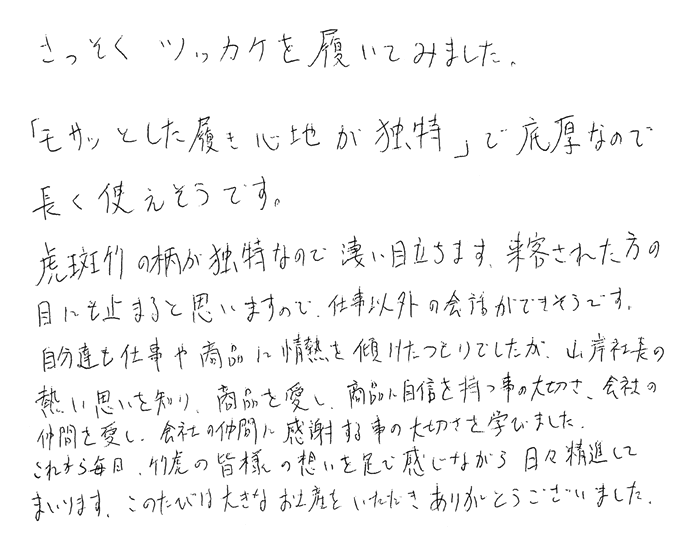 さっそく ツッカケを履いてみました。
「モサッとした履き心地が独特」で底厚なので
長く使えそうです。
虎斑竹の柄が独特なので凄い目立ちます、来客された方の
目にも止まると思いますので、仕事以外の会話ができそうです。
自分達も仕事や商品に情熱を傾けたつもりでしたが、山岸社長の
熱い思いを知り、商品を愛し、商品に自信を持つ事の大切さ、会社の
仲間を愛し、会社の仲間に感謝する事の大切さを学びました。
これから毎日、竹虎の皆様の想いを足で感じながら日々精進して
まいります、このたびは大きなお土産をいただきありがとうございました。